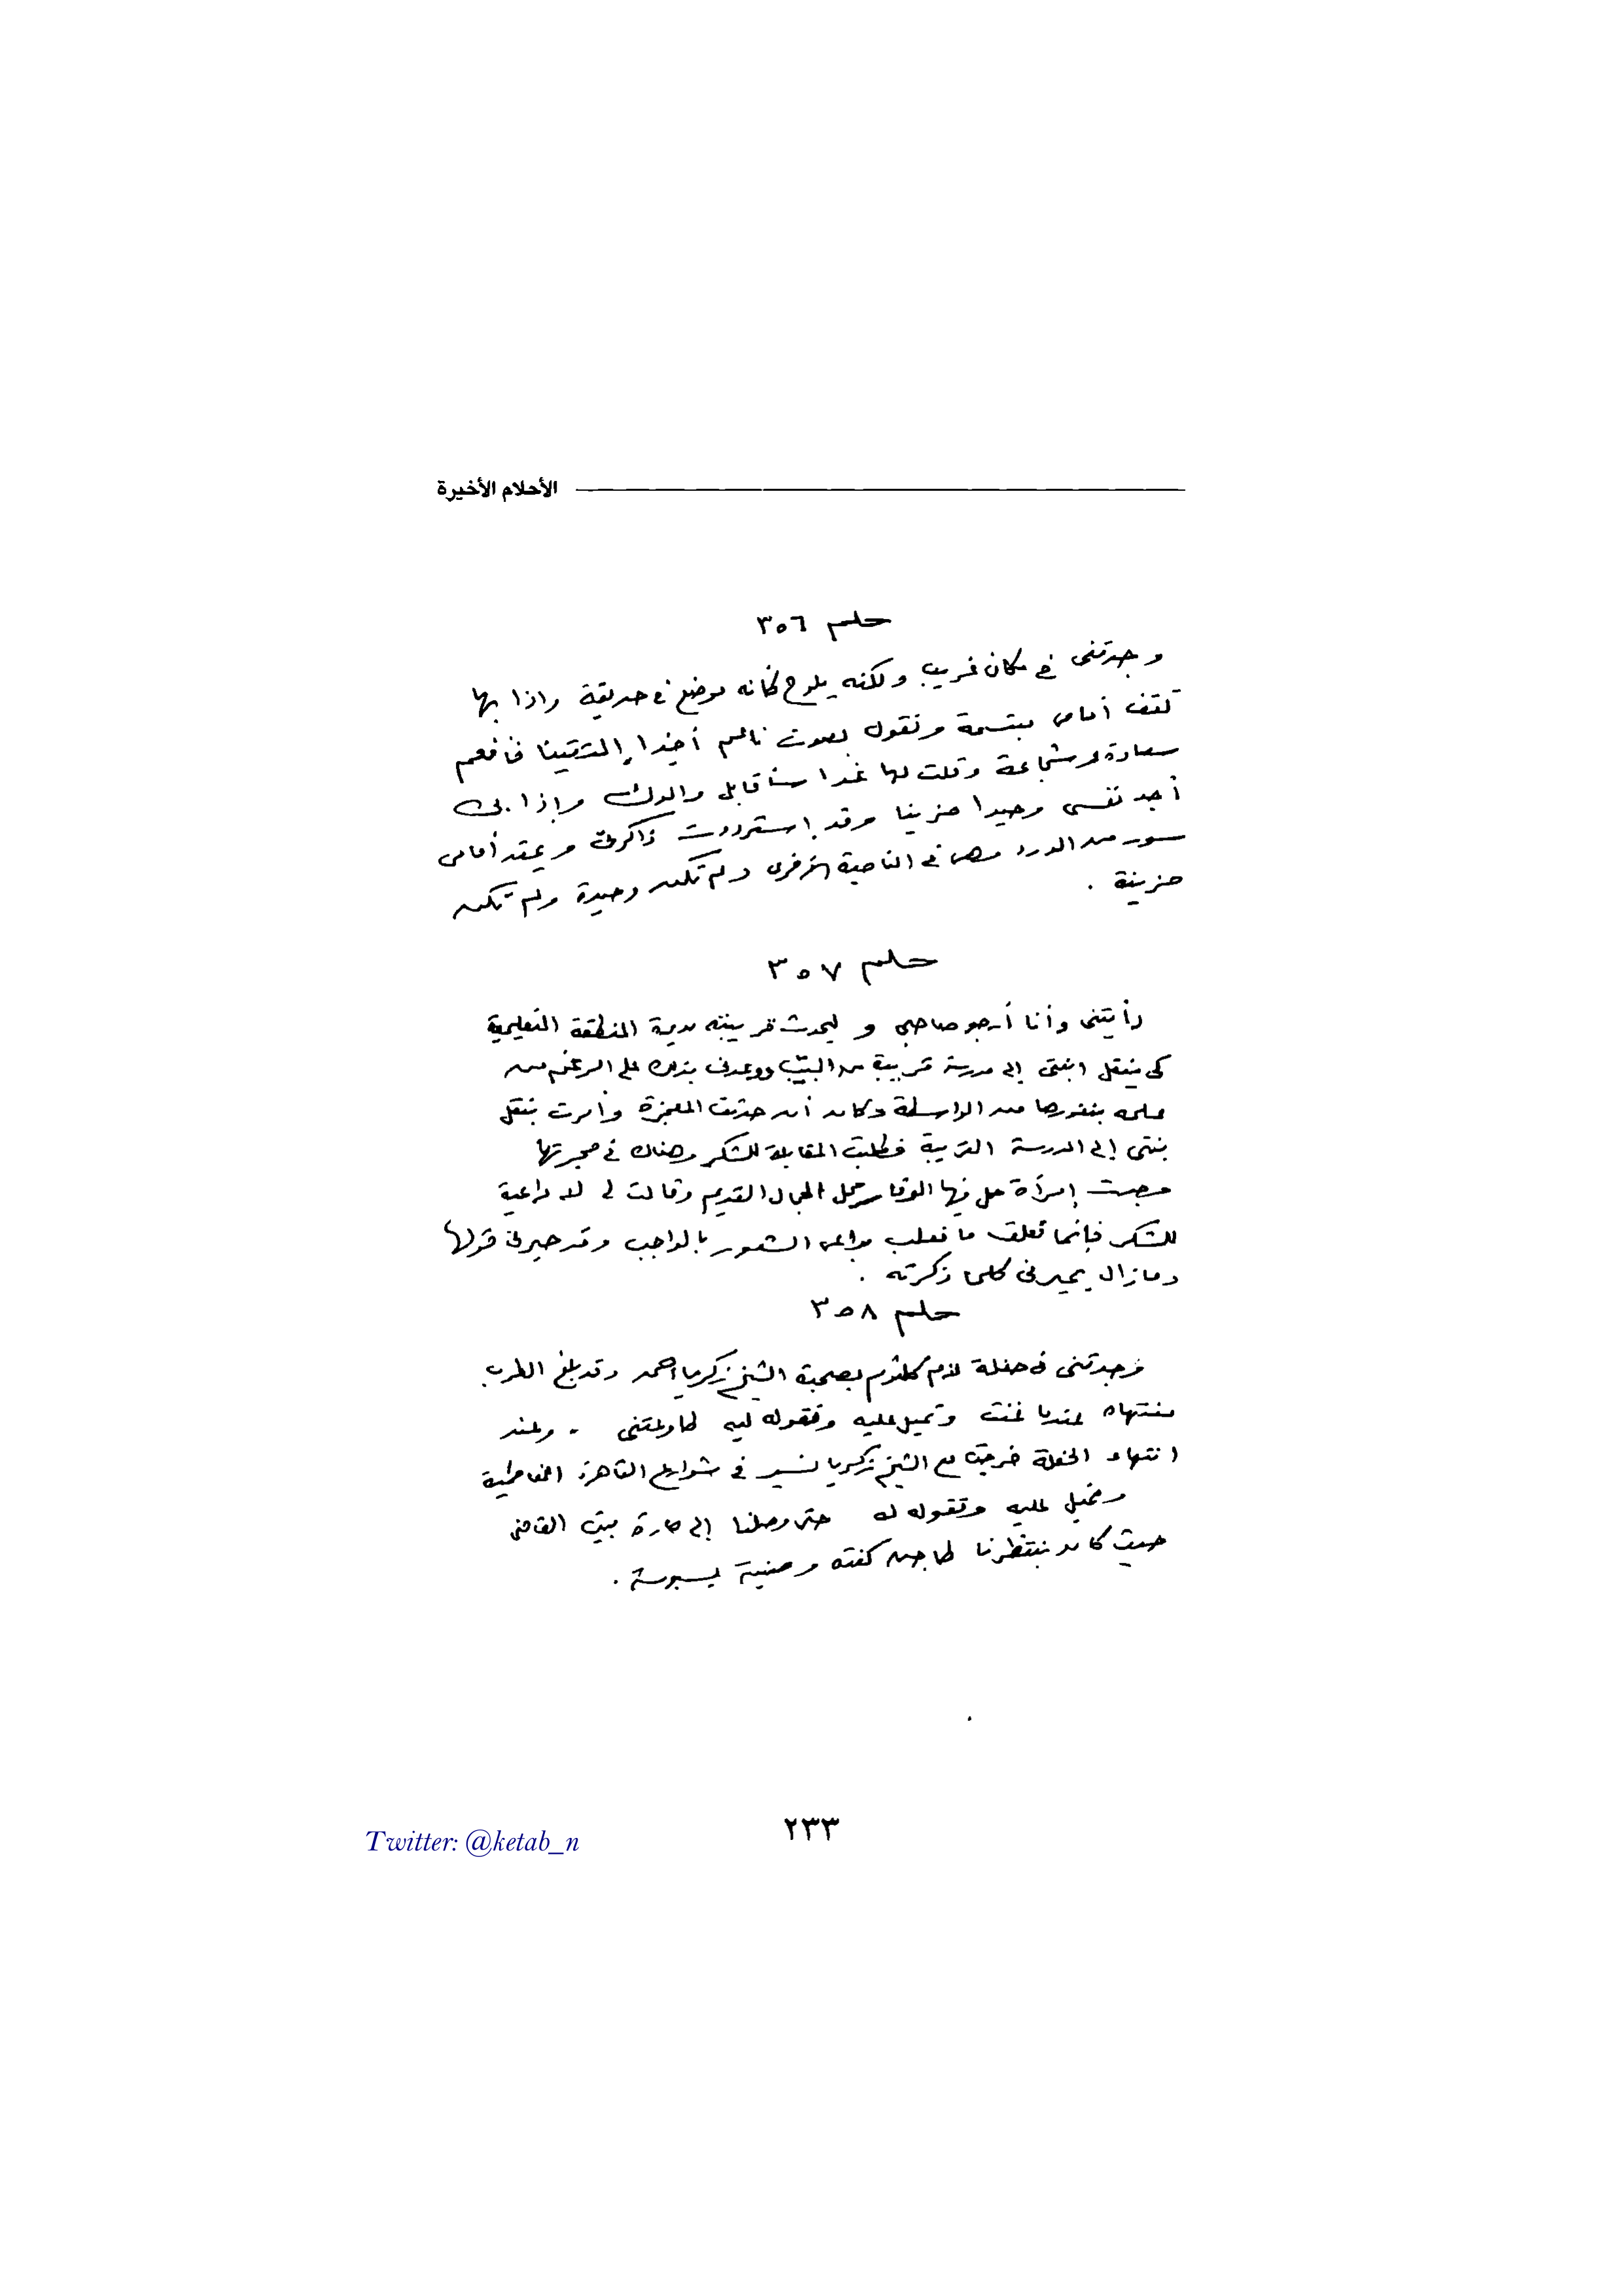 الأحلام الأخيرة
حلم ٣٥٦
وجدتنى فى مكان غريب ولكنه يلوح كأنه موضع فى حديقة واذا بها
تقف أمامى مبتسمة وتقول بصوت ناعم أخيرا إلتقينا فأفعم
سعادة وشجاعة وقلت لها غدا سأقابل والدك وإذا بى
أجد نفسى وحيدا حزينا وقد استرددت ذاكرتى ويمتد أمامى
سور من الورد وهى فى الناحية الأخرى ولم تكن وحيدة ولم تكن
حزينة .
حلم ٣٥٧
رأيتنى وأنا أرجو صاحبى و ليحدث قريبته مديرة المنطقة التعليمية
كى ينقل ابنتى إلى مدرسة قريبة من البيت ووعدنى بذلك على الرغم من
علمه بنفورها من الواسطة وكان أن حدثت المعجزة وأمرت بنقل
بنتى إلى المدرسة القريبة فطلبت المقابلة للشكر وهناك فى حجرتها
وجدت إمرأة حل فيها الوقار محل الجمال القديم وقالت لى لا داعية
للشكر فإنما فعلت ما فعلت بداعى الشعور بالواجب وقد حيرنى قولها
ومازال يحيرنى كلما ذكرته .
حلم ٣٥٨
وجدتنى فى حفلة لأم كلثوم بصحبة الشيخ زكريا أحمد وقد بلغ الطرب
منتهاه عندما غنت وتميل عليه وتقوله ليه طاوعتنى . وعند
انتهاء الحفلة خرجت مع الشيخ زكريا نسير فى شوارع القاهرة الفاطمية
وتميل عليه وتقوله له حتى وصلنا إلى حارة بيت القاضى
حيث كان ينتظرنا طاجن كفته وصنية بسبوسة .
٢٣٣
Twitter: @ketab_n